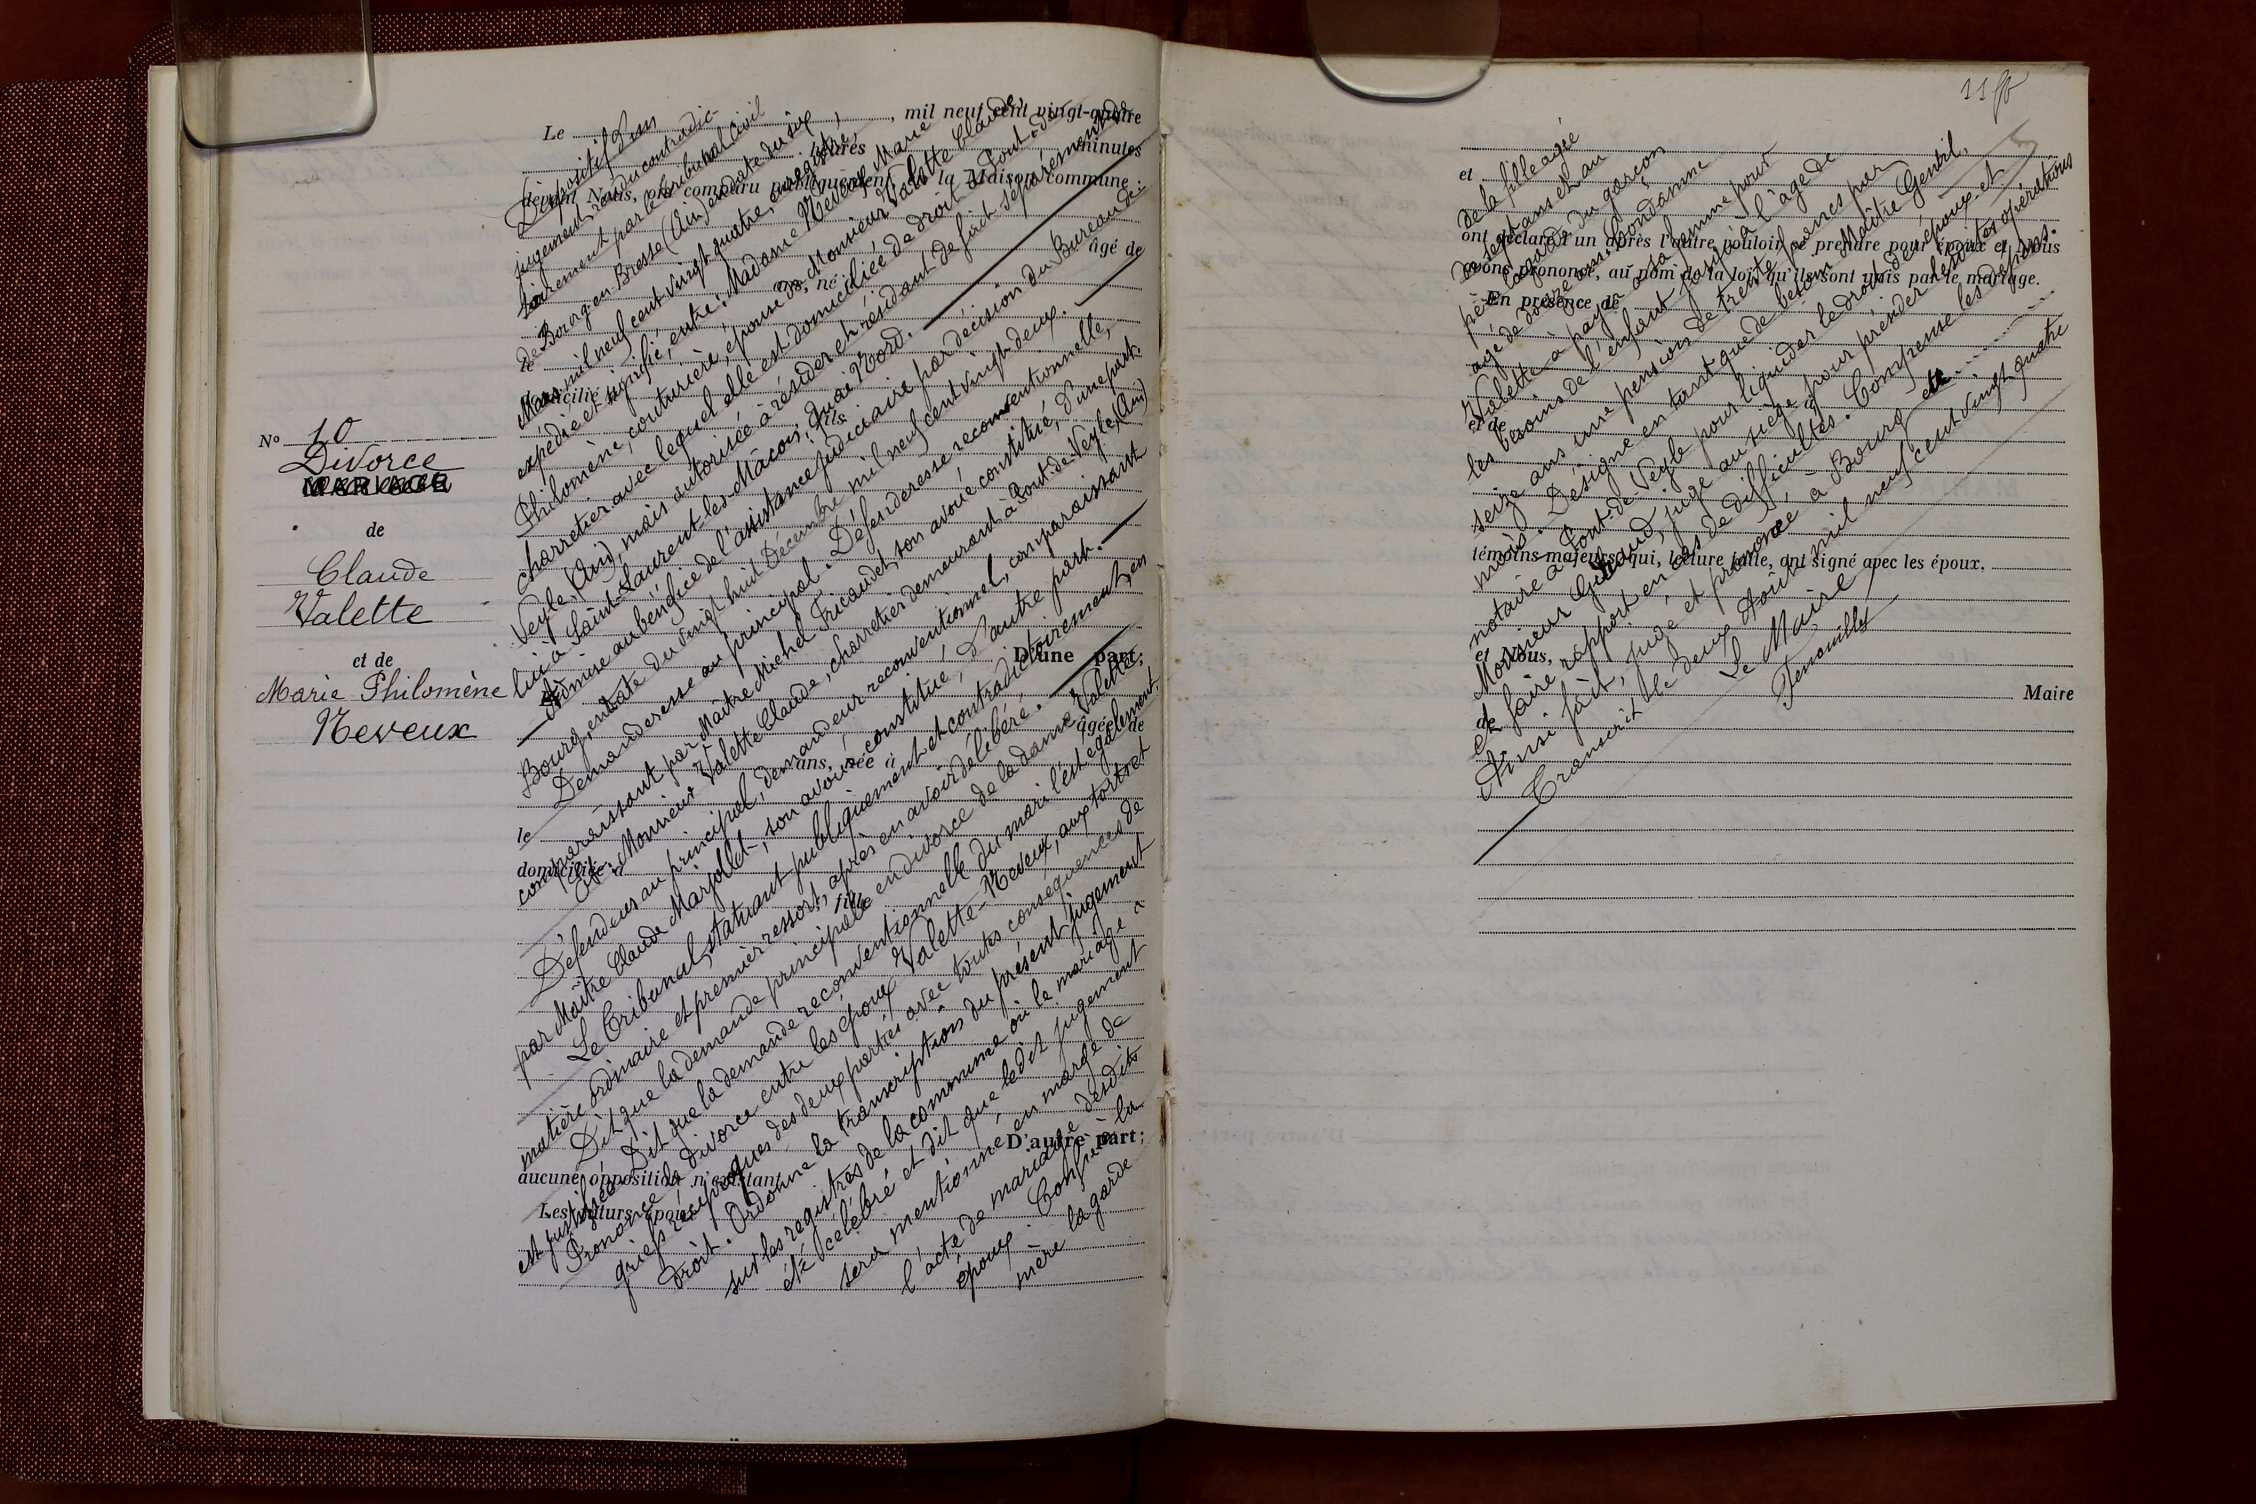 11
N° 10
Divorce
MARIAGE
de
Claude
Valette
et de
Marie Philomène
Neveux
Le , mil neuf cent vingt-quatre
heures minutes
devant Nous, ont comparu publiquement en la Maison commune :
âgé de
ans, né à
le
domicilié à
fils
D'une part;
Et
âgée de
ans, née à
le
domiciliée à
fille
D'autre part;
aucune opposition n'existant
Les futurs époux
Dispositif d'un
jugement rendu contradic-
toirement par le tribunal Civil
de Bourg en Bresse (Ain) en date du six
Mars mil neuf cent vingt quatre, enregistré,
expédié et signifié, entre: Madame Neveux Marie
Philomène, couturière, épouse de Monsieur Valette Claude,
charretier avec lequel elle est domiciliée de droit à Pont-de-
Veyle, (Ain), mais autorisée à résider et résidant de fait séparément de
lui à Saint-Laurent-les-Mâcon, quai Nord.
Admise au bénéfice de l'assistance judiciaire par décision du Bureau de
Bourg, en date du vingt huit Décembre mil neuf cent vingt-deux.
Demanderesse au principal. Défenderesse reconventionnelle,
comparaissant par Maître Michel Fricaudet, son avoué constitué, d'une part.
Et: Monsieur Valette Claude, charretier demeurant à Pont-de-Veyle, (Ain)
Défendeur au principal, demandeur reconventionnel, comparaissant
par Maître Claude Marjollet, son avoué constitué, d'autre part.
Le Tribunal, statuant publiquement et contradictoirement, en
matière ordinaire et premier ressort, après en avoir délibéré.
Dit que la demande principale en divorce de la dame Valette
est justifiée. Dit que la demande reconventionnelle du mari l'est également.
Prononce le divorce entre les époux Valette-Neveux, aux torts et
griefs réciproques des deux parties avec toutes conséquences de
droit. Ordonne la transcription du présent jugement
sur les registres de la commune où le mariage a
été célébré et dit que ledit jugement
sera mentionné en marge de
l'acte de mariage desdits
époux. Confie à la
mère la garde
et
ont déclaré l'un après l'autre vouloir se prendre pour époux et Nous
avons prononcé, au nom de la loi, qu'ils sont unis par le mariage.
En présence de
et de
témoins majeurs qui, lecture faite, ont signé avec les époux,
et Nous,
Maire
de
de la fille agée
de sept ans et au
père la garde du garçon
agé de douze ans. Condamne
Valette à payer à sa femme pour
les besoins de l'enfant jusqu'à l'age de
seize ans une pension de trente francs par
mois. Désigne en tant que de besoin Maître Gentil,
notaire à Pont-de-Veyle pour liquider le droit des époux et
Monsieur Giraud, juge au siège pour présider lesdites opérations
et faire rapport en cas de difficultés. Compense les dépens.
Ainsi fait, jugé et prononcé à Bourg etc
Transcrit le deux Août mil neuf cent vingt quatre
Le Maire